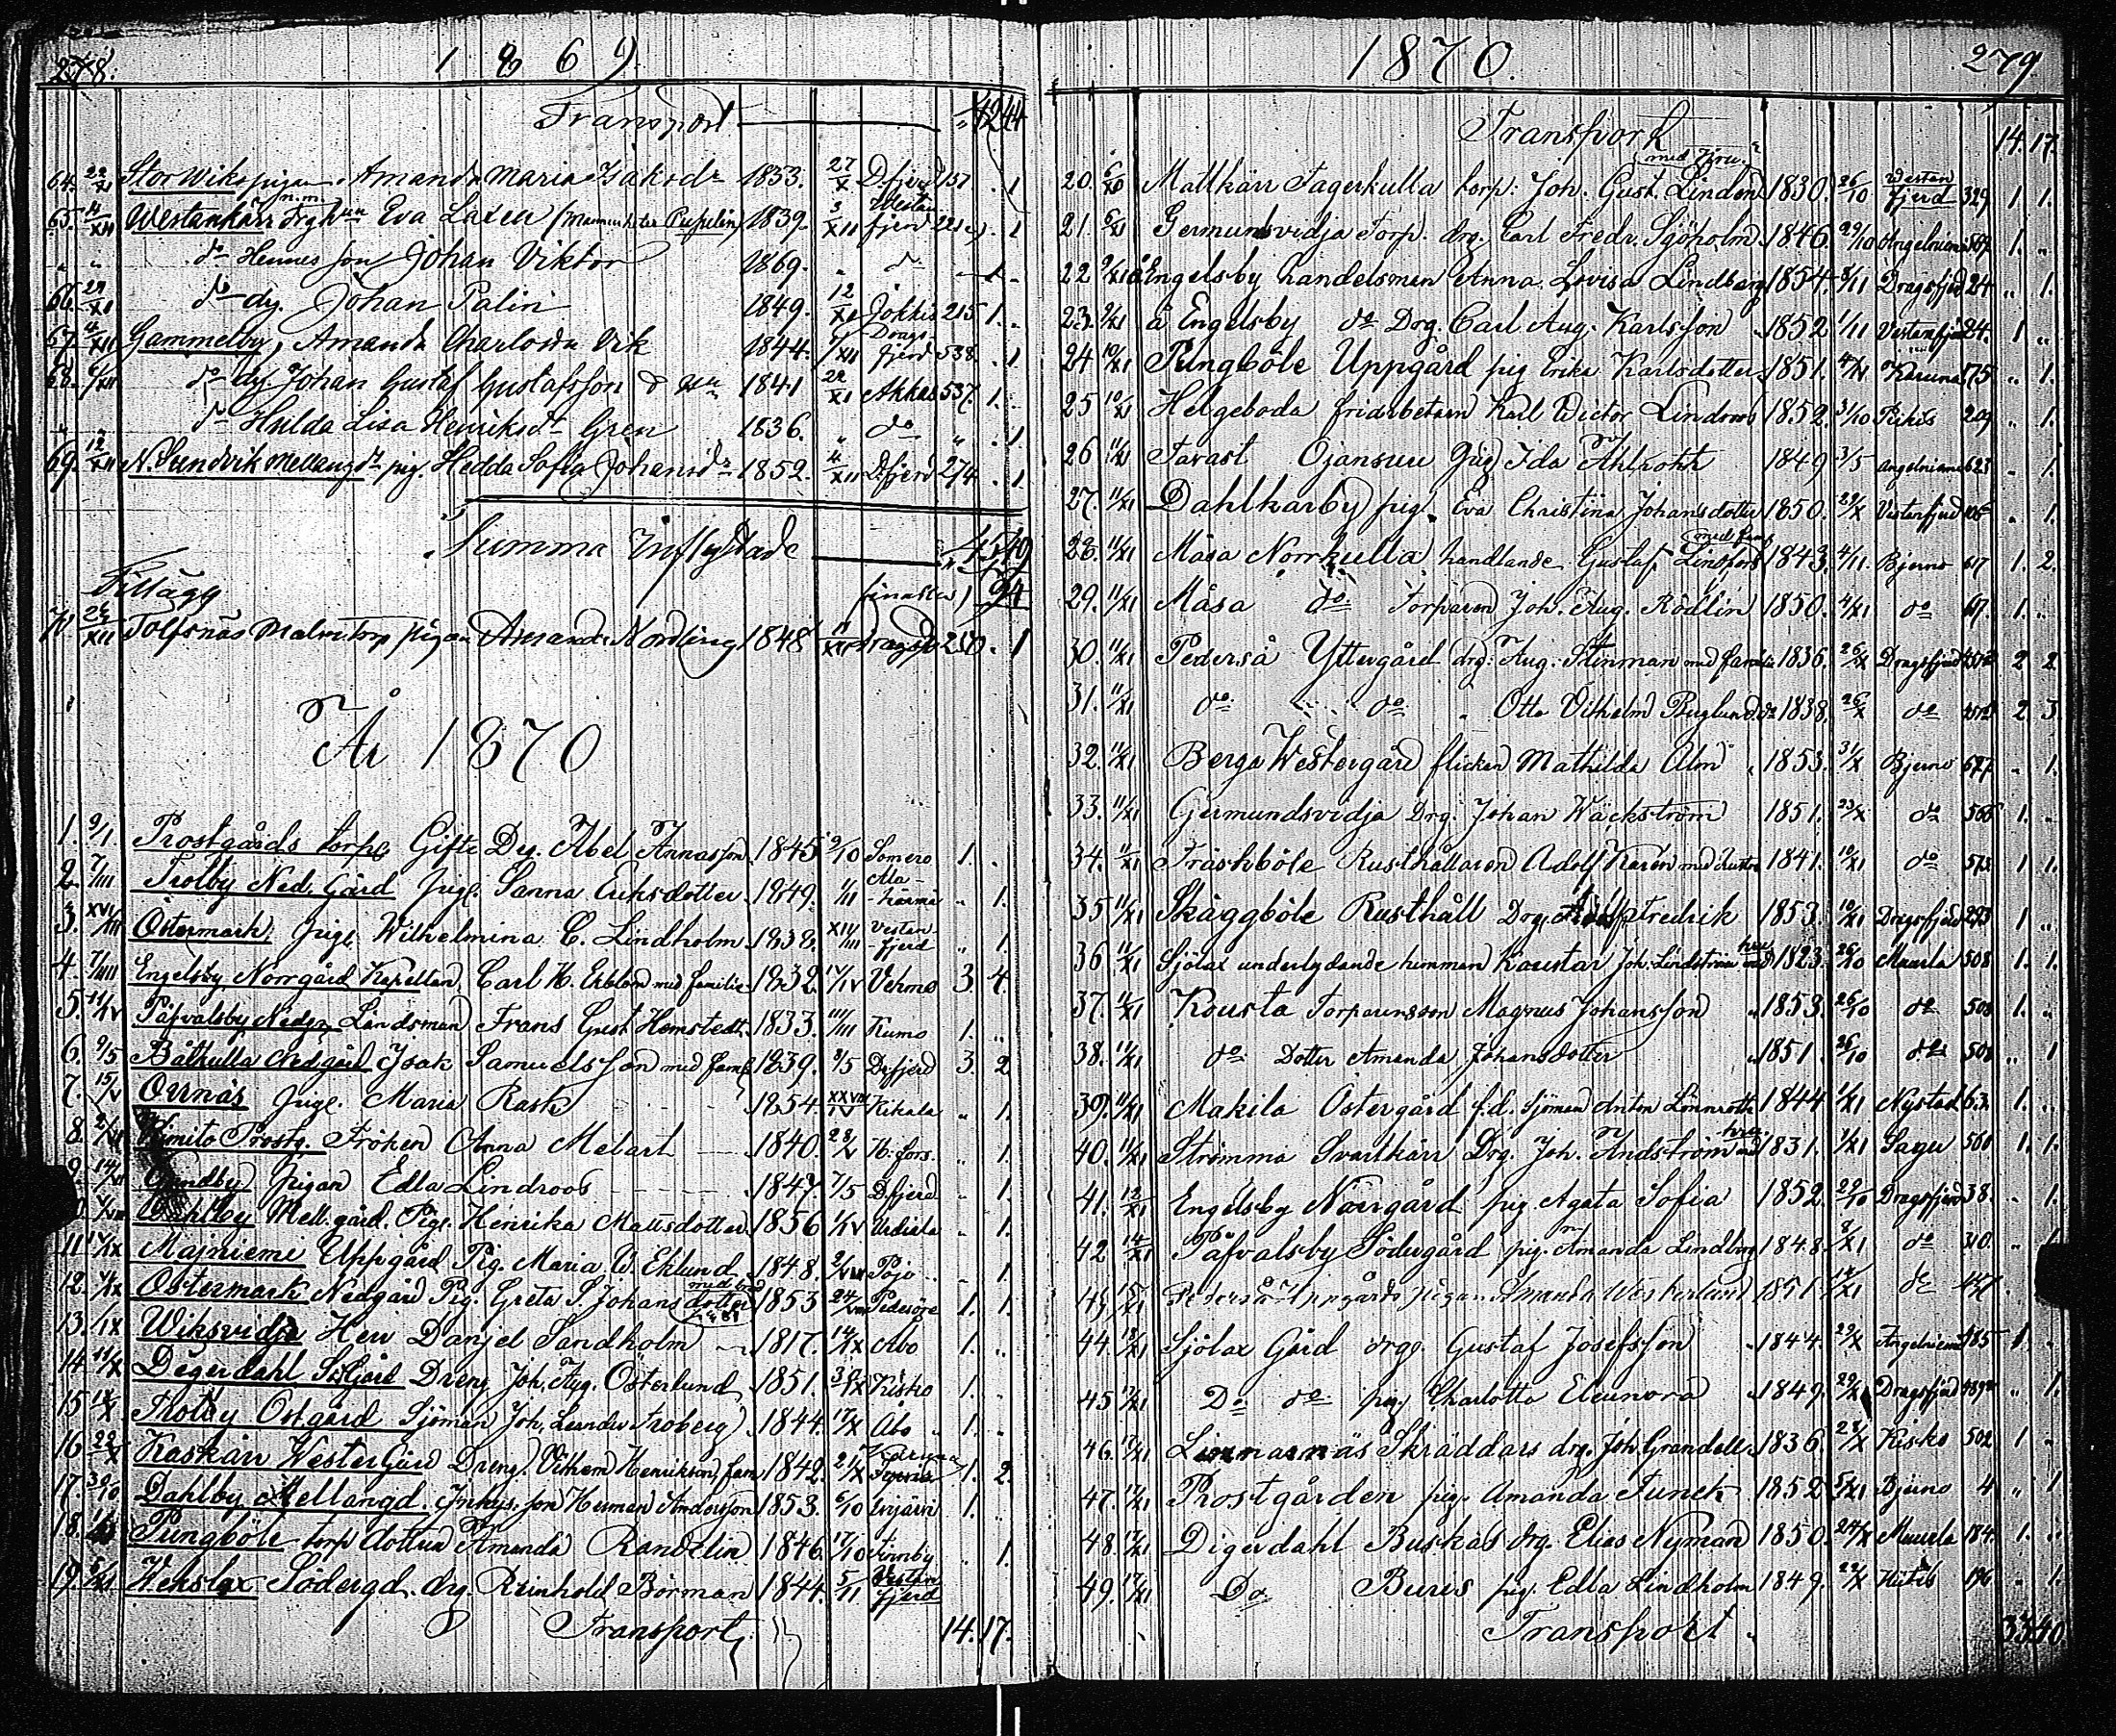 278. 1869
Transport — 42 44
64. 22/XI Stor Wiks pigan Amanda Maria Isaksdr 1853. 27/X D.fjerd 157 . 1
65. 4/XII Westankärr Eva Laxen (mannen heter) 1839. 3/XII Westanfjerd 221 . 1
" " do Hennes son Johan Viktor 1869. " do
66. 29/XI do dg. Johan Palin 1849. 12/XI Jokkis 215 1. .
67. 4/XII Gammelby, Amanda Charlotta Vik 1844. 1/XII Dragsfjerd 538 . 1
68. 6/XII do dg. Johan Gustaf Gustafsson 1841 29/XI 537. 1. .
" " do Hulda Lisa Henriksdr Gren 1836. " do " . 1
69. 12/XII N. Sundvik Mellangd pig. Hedda Sofia Johansdr 1852. 4/XII D.fjerd 274 . 1
Summa Inflyttade — 45 49
94
Tillägg
70 Tolfsnäs Malmtorp pigan Amanda Nordling 1848 Dragsfj 250. . 1
År 1870
1. 9/1 Prostgårds torp Gifte Dg. Abel Annasson 1845 9/10 Somero 1. .
2. 7/III Trotby Ned. Gård pig. Sanna Eriksdotter 1849. 1/III Alahärmä " 1.
3. Östermark, pig. Wilhelmina C. Lindholm 1838. Vestanfjerd " 1.
4. Engelsby Norrgård Kapellan, Carl H. Ekblom med familie 1832. Vehmo 3. 4.
5. 11/IV Påfvalsby Nedgd Länsman Frans Gust. Hemstedt 1833. Kumo 1. "
6. 9/5 Båtkulla Nedgård Isak Samuelsson med fam. 1839. 8/5 D.fjerd 3. 2
7. 15/V Ornäs pige. Maria Rask 1854. Kikala " 1.
8. Kimito Prostg. Fröken Anna Melart 1840. 28/V H.fors. " 1.
9. Sundby pigan Edla Lindroos 1847. 7/5 D.fjerd " 1.
Dahlby Mell.gård. Pig. Henrika Mattsdotter 1856 " 1.
11 Majniemi Uppgård Pig. Maria W. Eklund 1848. Pojo . 1.
med barn
12. Östermark Nedgård Pig. Greta S. Johansdotter 1853 Pedersöre 1. 1.
13. Wiksvidja Herr Danjel Sandholm 1817. 14/IX Åbo 1. "
14. 11/X Digerdahl S. Gård Dreng Joh. Aug. Österlund 1851. Kisko 1. .
15 Trotby Östgård Sjöman Joh. Leander Froberg 1844. 17/X Åbo " 1. .
16. 22/X Kaskärr WesterGård Dreng. Vilhem Henrikson fam. 1842. 21/X Karuna 1. 2.
17. Dahlby Mellangd. Inhys. son Herman Andersson 1853. 6/10 1. .
18. Pungböle torp dottren Amanda Randelin 1846. 17/10 Finnby . 1.
19. Wekslax Södergd. drg. Reinhold Börman 1844. 5/11 Vestanfjerd
Transport 14. 17.
1870. 279
Transport 14. 17.
med hru
20. Mattkärr Fagerkulla torp: Joh. Gust. Linden 1830. 26/10 Westanfjerd 329 1 1.
21. Germundsvidja Torp. drg. Carl Fredr. Sjöholm 1846. 29/10 Angelniemi 1. "
22 Engelsby handelsman Anna Lovisa Lindberg 1854. 8/11 Dragsfjerd 24 " 1.
23. å Engelsby do Drg. Carl Aug. Karlsson 1852 1/11 Vestanfjerd 24. 1 "
24 10/XI Pungböle Uppgård pig Erika Karlsdotter 1851. 4/XI Karuna 175 " 1.
25 10/XI Helgeboda Karl Victor Lindroos 1852. 31/10 Pikis 209 " 1.
26 11/XI Tavast Ojansuu pig Ida Ahlroth 1849 3/5 Angelniemi 623 . 1.
27. 11/XI Dahlkarby pig. Eva Christina Johansdotter 1850. 29/X Vestanfjerd . 1.
med fam
28. 11/XI Måsa Norrkulla handlande Gustaf Lindfors 1843. 4/11. Bjerno 617 1. 2.
29. 11/XI Måsa do Torparen Joh. Aug. Rödlin 1850. 4/XI do 67. 1. .
30. 11/XI Pederså Yttergård drg. Aug. Stenman med familie 1836. 26/X Dragsfjerd 2 2
31. 11/XI do do " Otto Vilhelm Buglund do 1838. 26/X do 2. 3.
32. 11/XI Berga Westergård flickan Mathilda Alm 1853. 31/X Bjerno 677. . 1.
33. 11/XI Germundsvidja Drg. Johan Wäckström 1851. 23/X do 566 1. .
34. 11/XI Fräskböle Rusthållaren Adolf Karén med hustru 1841. 10/XI do 573 1. 1.
35 11/XI Skäggböle Rusthåll Drg. Fredrik 1853. 10/XI Dragsfjerd 293 1 "
36 11/XI Sjölax underlydande hemman Koustar Joh. Lindström med hru 1823. 26/10 Muurla 508 1. 1.
37. 11/XI Kousta Torparensson Magnus Johansson 1853. 26/10 do 508 1. "
38. 11/XI do Dotter Amanda Johansdotter 1851. 26/10 do 508 " 1
39. 11/XI Makila Östergård f.d. Sjöman Anton Lönnroth 1844 1/XI Nystad 63. 1. .
40. 11/XI Strömma Svartkärr Drg. Joh. Andström med hru 1831. 1/XI Sagu 560 1. 1.
41. 12/XI Engelsby Norrgård pig. Agata Sofia 1852. 29/10 Dragsfjerd 38. . 1.
42 14/XI Påfvalsby Södergård pig. Amanda Lindberg 1848. 8/XI do 310. " 1
43. 15/XI Pederså Uppgård pigan Amanda Westerlund 1851. do
44. Sjölax Gård drg. Gustaf Josefsson 1844. 29/X Angelniemi 485 1. .
45 17/XI Do do pig. Charlotta Eleonora 1849. 29/X Dragsfjerd " 1.
46. 17/XI Lemnarnäs Skräddars drg. Joh. Grandell 1836. 28/X Kisko 502 1. .
47. 17/XI Prostgården pig. Amanda Funck 1852 Bjerno 4 " 1
48. 17/XI Digerdahl Buskas drg. Elias Nyman 1850. 24/X Muurla 184. 1. .
49. 17/XI Do Burss pig. Edla Lindholm 1849. Hitis 196 . 1.
Transport. 33 40